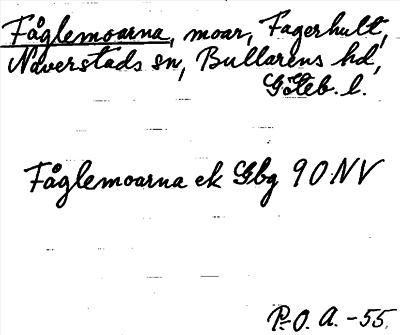 Fåglemoarna, moar, Fagerhult,
Naverstads sn, Bullarens hd,
Göteb. l.
Fåglemoarna ek Gbg 90 NV
P-O. A. -55.